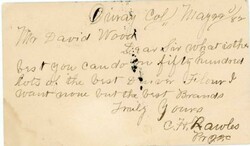 Ouray Col May
Mr David Wood
Dear Sir What is the
best you can do on fifty hundred
lots of the best Flour I
Want none but the best Brands
Truly Yours
C. H. Rawles